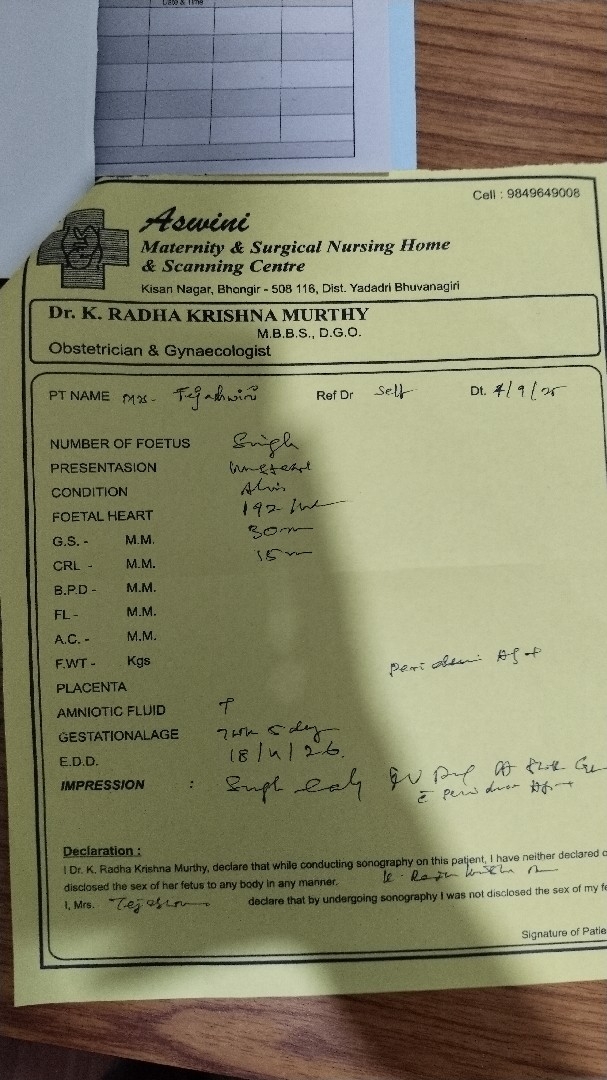 Date & Time
Cell : 9849649008
Aswini
Maternity & Surgical Nursing Home
& Scanning Centre
Kisan Nagar, Bhongir - 508 116, Dist. Yadadri Bhuvanagiri
Dr. K. RADHA KRISHNA MURTHY
M.B.B.S., D.G.O.
Obstetrician & Gynaecologist
PT NAME Mrs- Tejashwini Ref Dr Self Dt. 4/9/25
NUMBER OF FOETUS Single
PRESENTASION
CONDITION Alive
FOETAL HEART 192/
G.S. - M.M. 30
CRL - M.M. 15
B.P.D - M.M.
FL - M.M.
A.C. - M.M.
F.WT - Kgs
PLACENTA
AMNIOTIC FLUID
GESTATIONALAGE 7wk 5 day
E.D.D. 18/4/26.
IMPRESSION : Single early
Declaration :
I Dr. K. Radha Krishna Murthy, declare that while conducting sonography on this patient, I have neither declared
disclosed the sex of her fetus to any body in any manner.
I, Mrs. declare that by undergoing sonography I was not disclosed the sex of my
Signature of